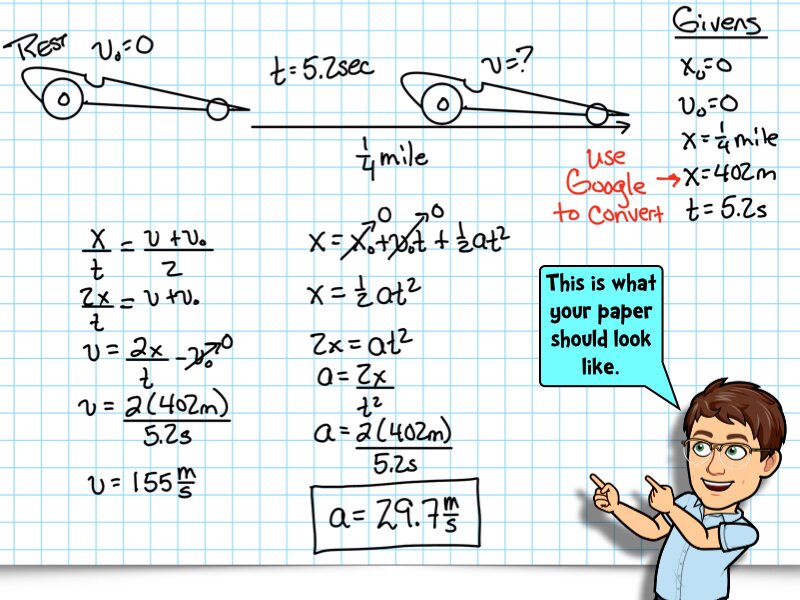 REST v₀=0
t=5.2sec
v=?
1/4 mile
Givens
x₀=0
v₀=0
x=1/4 mile
x=402m
t=5.2s
use
Google →
to convert
x/t = (v+v₀)/2
2x/t = v+v₀
v = 2x/t - v₀ 0
v = 2(402m)/5.2s
v = 155 m/s
x = x₀ 0 + v₀t 0 + 1/2 at²
x = 1/2 at²
2x = at²
a = 2x/t²
a = 2(402m)/5.2s
a = 29.7 m/s
This is what
your paper
should look
like.